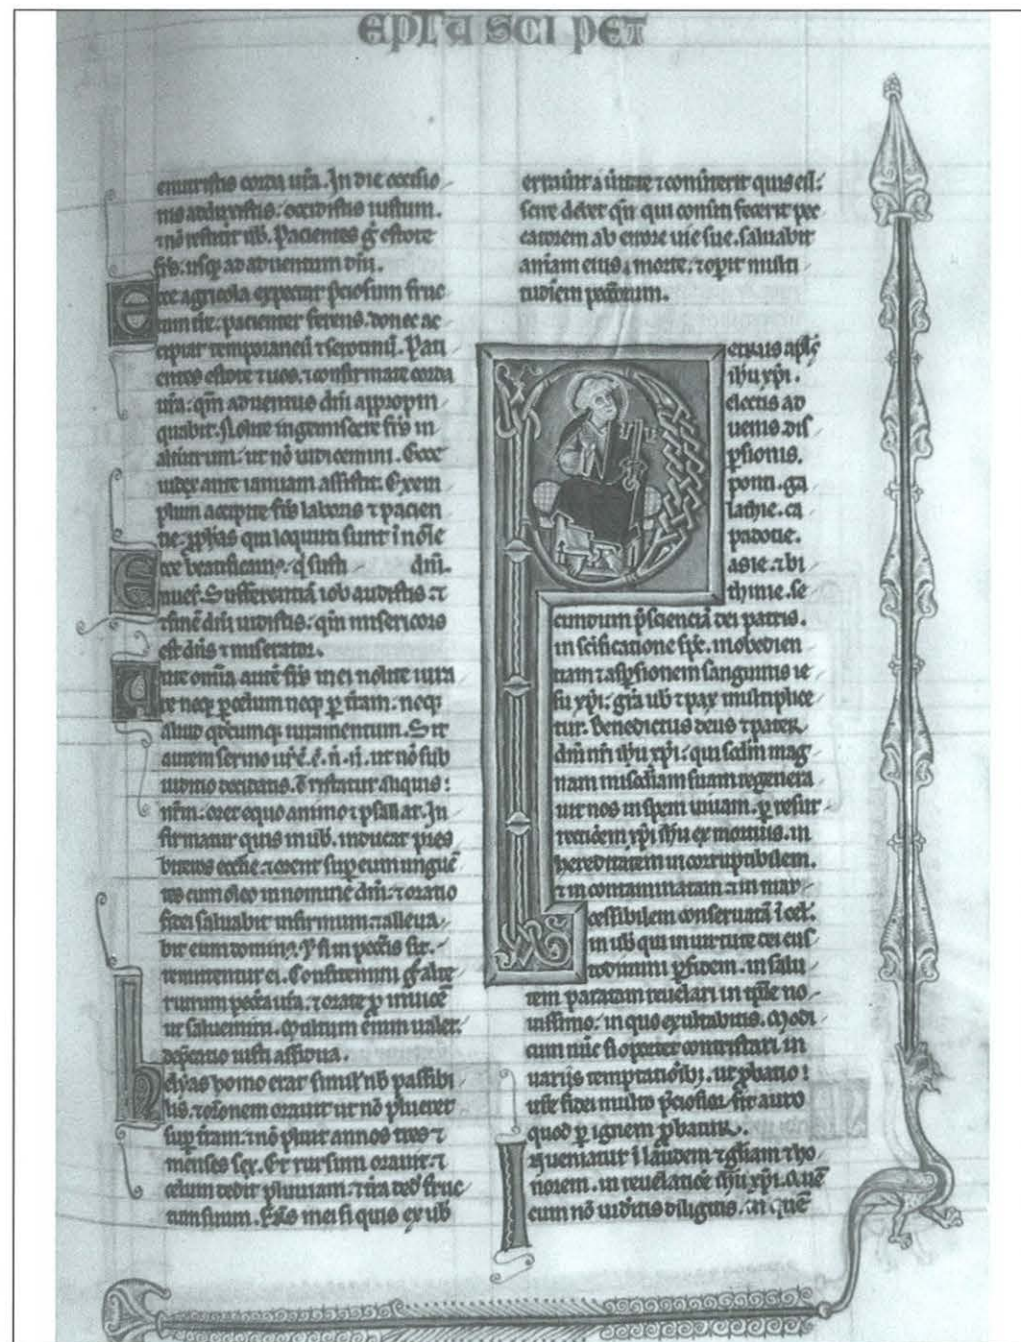 EPLA SCI PET
enutristis corda ura. In die occisio
nis adduxistis. occidistis iustum.
⁊ nō restitit uob. Pacientes g̃ estote
frs. usq; ad aduentum dnī.
Ecce agricola expectat p̄ciosum fruc
tum tre. pacienter ferens. donec ac
cipiat temporaneū ⁊ serotinū. Pati
entes estote ⁊ uos. ⁊ confirmate corda
ura. qm̄ aduentus dnī appropin
quabit. Nolite ingemiscere frs in
alterutrum. ut nō iudicemini. Ecce
iudex ante ianuam assistit. Exem
plum accipite frs laboris ⁊ pacien
tie. p̄phas qui loquuti sunt ī noīe
Ecce beatificamꝰ. q̄ susti dnī.
nuef. Sufferentiā iob audistis ⁊
⁊ finē dnī uidistis. qm̄ misericors
est dn̄s ⁊ miserator.
Ante omīa autē frs mei nolite iura
re neq; p̄ celum neq; p̄ tr̄am. neq;
aliud qdcumq; iuramentum. Sit
autem sermo ur̄. ē. ē. n̄. n̄. ut nō sub
iudicio decidatis. Tristatur aliquis:
ur̄m. oret equo animo ⁊ psallat. In
firmatur quis in uob. inducat pres
biteros ecctie. ⁊ orent sup eum unguē
tes eum oleo in nomine dnī. ⁊ oratio
fidei saluabit infirmum. ⁊ alleua
bit eum dominꝰ. ⁊ si in pctīs sit.
remittentur ei. Confitemini g̃ alte
rutrum pctā ura. ⁊ orate p̄ inuicē
ut saluemini. Multum enim ualet.
dep̄catio iusti assidua.
helyas homo erat simil' nb̄ passibi
lis. ⁊ orōnem orauit ut nō plueret
sup tr̄am. ⁊ nō pluit annos tres ⁊
menses sex. Et rursum orauit. ⁊
celum dedit pluuiam. ⁊ tr̄a ded' fruc
tum suum. Frs mei si quis ex uob
errauīt a uītate ⁊ conūterit quis eū:
scire debet qm̄ qui conūti fecerit pec
catorem ab errore uie sue. saluabit
animam eius a morte. ⁊ opīt multi
tudinem pecc̄torum.
Petrus apl̄s
ihū xp̄i.
electis ad
uenis dis
p̄sionis.
ponti. ga
lathie. ca
padocie.
asie. ⁊ bi
thinie. se
cundum p̄scienciā dei patris.
in sc̄ificatione sp̄c. in obedien
tiam ⁊ asp̄sionem sanguinis ie
su xp̄i. gr̄a uob ⁊ pax multiplice
tur. Benedictus deus ⁊ pater
dnī nrī ihū xp̄i. qui scdm mag
nam misc̄diam suam regenera
uit nos in spem uiuam. p̄ resur
rectiōem xp̄i ihū ex mortuis. in
hereditatem in corruptibilem.
⁊ in contaminatam ⁊ in mar
cessibilem conseruatā ī cel'.
in uob qui in uirtute dei cus
todimini p̄ fidem. in salu
tem paratam reuelari in tp̄e no
uissimo. in quo exultabitis. Modi
cum nūc si oportet contristari in
uariis temptatiōib;. ut p̄batio
uestre fidei multo p̄ciosior sit auro
quod p̄ ignem p̄batur.
Inueniatur ī laudem ⁊ gl̄iam ⁊ ho
norem. in reuelatiōe ihū xp̄i. Quē
cum nō uideritis diligitis. in quē